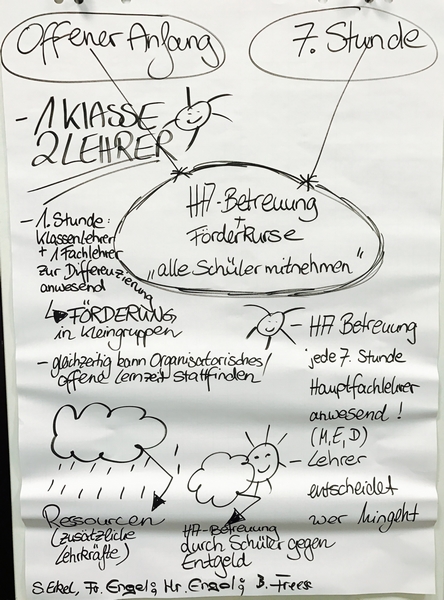 Offener Anfang
7. Stunde
- 1 KLASSE
2 LEHRER
HA-Betreuung
+
Förderkurse
„alle Schüler mitnehmen"
- 1. Stunde:
Klassenlehrer
+ 1 Fachlehrer
zur Differenzierung
anwesend
↳ FÖRDERUNG
in Kleingruppen
- gleichzeitig kann Organisatorisches/
offene Lernzeit stattfinden
- HA Betreuung
jede 7. Stunde
Hauptfachlehrer
anwesend!
(M, E, D)
- Lehrer
entscheidet
wer hingeht
Ressourcen
(zusätzliche
Lehrkräfte)
HA-Betreuung
durch Schüler gegen
Entgeld
Fr. Engel; Hr. Engel; B.